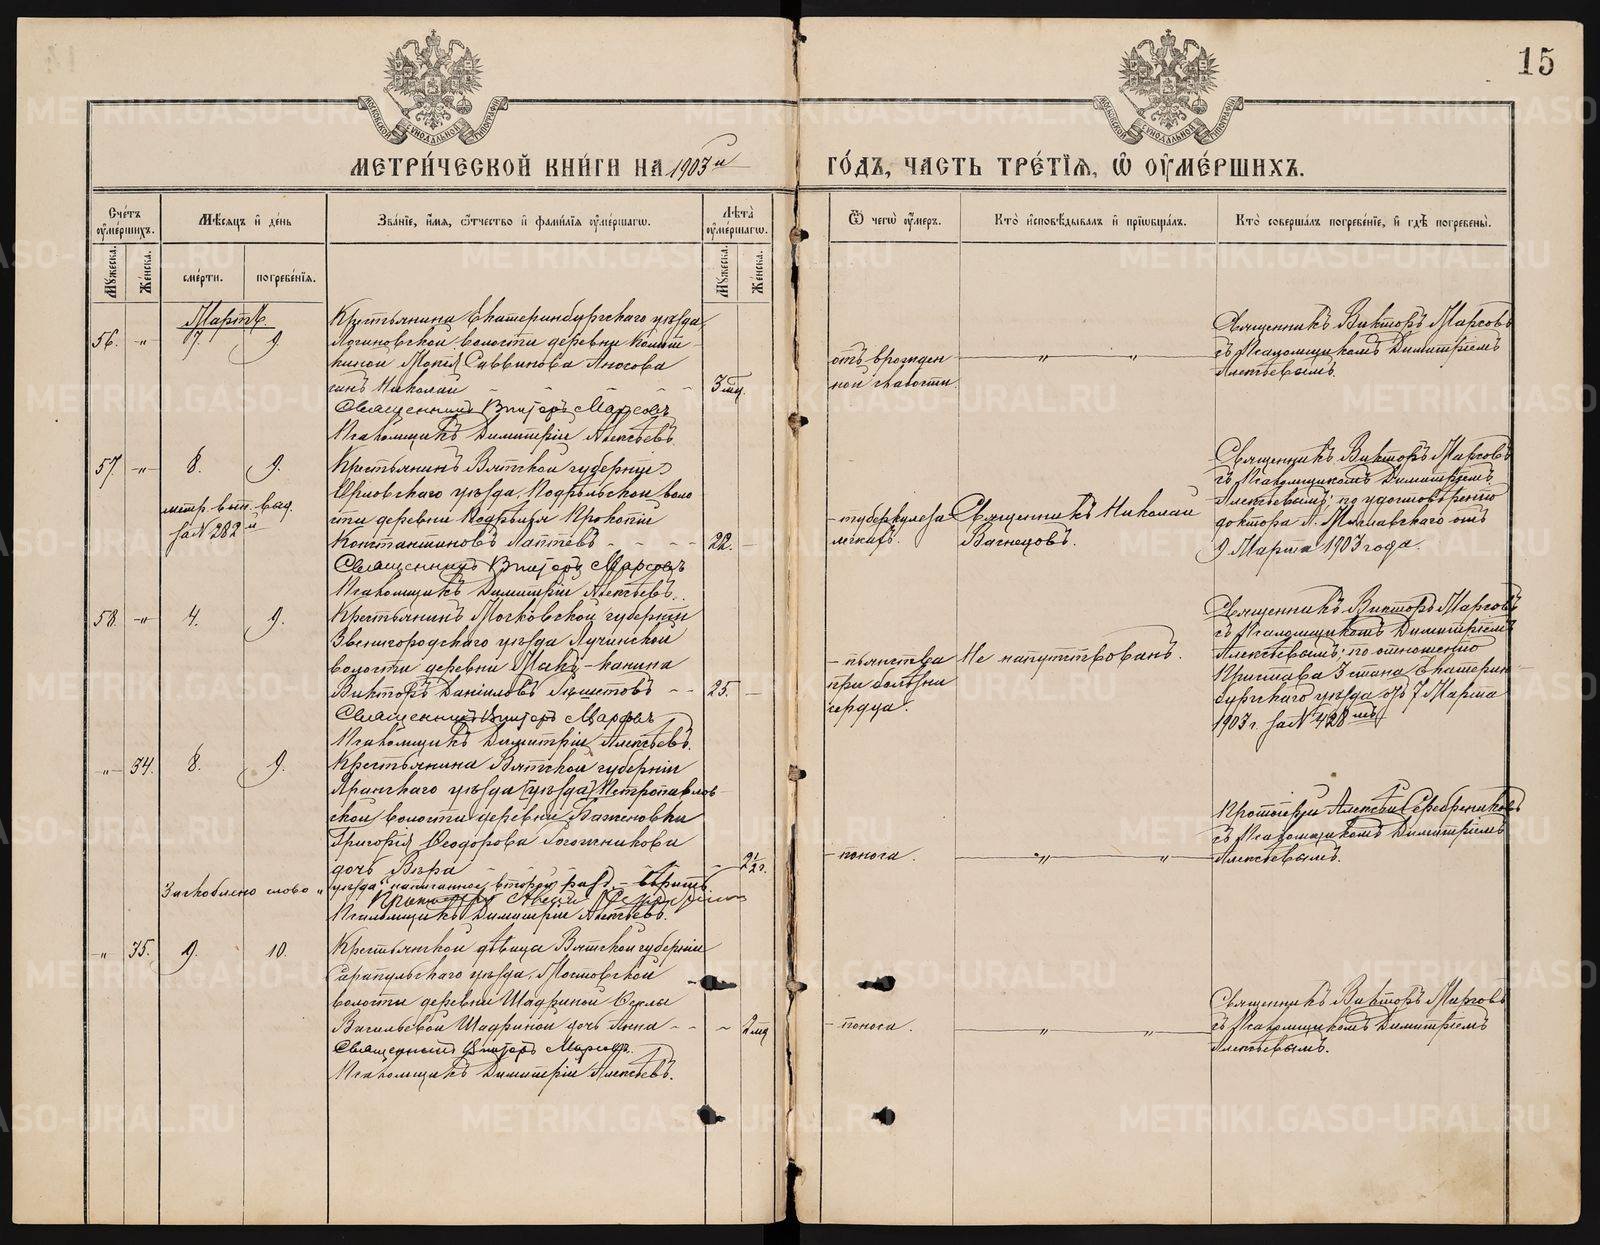 15
МОСКОВСКОЙ СѴНОДАЛЬНОЙ ТИПОГРАФІИ
МОСКОВСКОЙ СѴНОДАЛЬНОЙ ТИПОГРАФІИ
МЕТРИ́ЧЕСКОЙ КНИ́ГИ НА 1903й
ГО́ДЪ, ЧАСТЬ ТРЕ́ТІѦ, Ѽ ОУМЕ́РШИХЪ.
Сче́тъ оуме́ршихъ.
Мꙋжеска.
Же́нска.
Мѣ́сяцъ и де́нь
сме́рти.
погребе́нія.
Зва́ніе, и́мя, о́тчество и фами́лія оуме́ршагѡ.
Лѣта̀ оуме́ршагѡ.
Мꙋжеска.
Же́нска.
Ѿ чегѡ̀ оу́меръ.
Кто̀ исповѣ́дывалъ и пріѡбща́лъ.
Кто̀ соверша́лъ погребе́ніе, и гдѣ̀ погребены̀.
Мартъ
56. -"- 7. 9
Крестьянина Екатеринбургскаго уѣзда,
Логиновской волости деревни
Мокія Саввинова Аносова
сынъ Николай - - - - 3 мц.
Священникъ Викторъ Марсовъ
Псаломщикъ Димитрій Алексѣевъ.
отъ врожден
ной слабости.
" "
Священникъ Викторъ Марсовъ
съ Псаломщикомъ Димитріемъ
Алексѣевымъ.
57. -"- 8. 9.
метр. вып. выд.
за № 282й
Крестьянинъ Вятской губерніи
Орловскаго уѣзда, Подрѣльской воло
сти деревни Прокопій
Константиновъ Лаптевъ - - - - 22. -
Священникъ Викторъ Марсовъ
Псаломщикъ Димитрій Алексѣевъ.
- туберкулеза
легкихъ.
Священникъ Николай
Васнецовъ.
Священникъ Викторъ Марсовъ
съ Псаломщикомъ Димитріемъ
Алексѣевымъ; по удостовѣренію
доктора отъ
9 Марта 1903 года.
58. -"- 4. 9.
Крестьянинъ Московской губерніи
Звенигородскаго уѣзда Лучинской
волости деревни
Викторъ Даніиловъ - - 25. -
Священникъ Викторъ Марсовъ
Псаломщикъ Димитрій Алексѣевъ.
- пьянства
при болѣзни
сердца.
Не напутствованъ.
Священникъ Викторъ Марсовъ
съ Псаломщикомъ Димитріемъ
Алексѣевымъ; по отношенію
Пристава 3 стана Екатерин-
бургскаго уѣзда отъ 7 Марта
1903 г. за № 428мъ
-"- 34. 8. 9.
Крестьянина Вятской губерніи
Яранскаго уѣзда [уѣзда] Петропавлов-
ской волости деревни Баженовки
Григорія Ѳеодорова
дочь Вѣра - - 2½ г.
Заскоблено слово "
уѣзда", написанное второй разъ, - вѣрить.
Псаломщикъ Димитрій Алексѣевъ.
- поноса.
" "
Протоіерей Алексѣй
съ Псаломщикомъ Димитріемъ
Алексѣевымъ.
" 35. 9. 10.
Крестьянской дѣвицы Вятской губерніи
Сарапульскаго уѣзда, Мостовской
волости деревни Шадриной Ѳеклы
Васильевой Шадриной дочь Анна - - - 2 мц
Священникъ Викторъ Марсовъ.
Псаломщикъ Димитрій Алексѣевъ.
- поноса.
" "
Священникъ Викторъ Марсовъ
съ Псаломщикомъ Димитріемъ
Алексѣевымъ.
METRIKI.GASO-URAL.RU